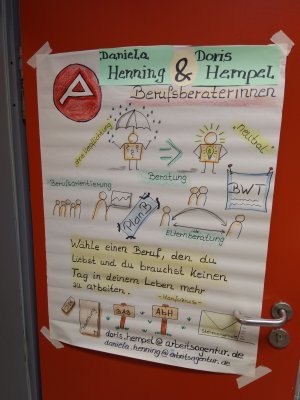 Daniela Doris
Henning & Hempel
Berufsberaterinnen
Neutral
Beratung
BWT
Berufsorientierung
Plan B
Elternberatung
Wähle einen Beruf, den du
liebst und du brauchst keinen
Tag in deinem Leben mehr
zu arbeiten.
- Konfuzius -
BAB
AbH
doris.hempel@arbeitsagentur.de
daniela.henning@arbeitsagentur.de